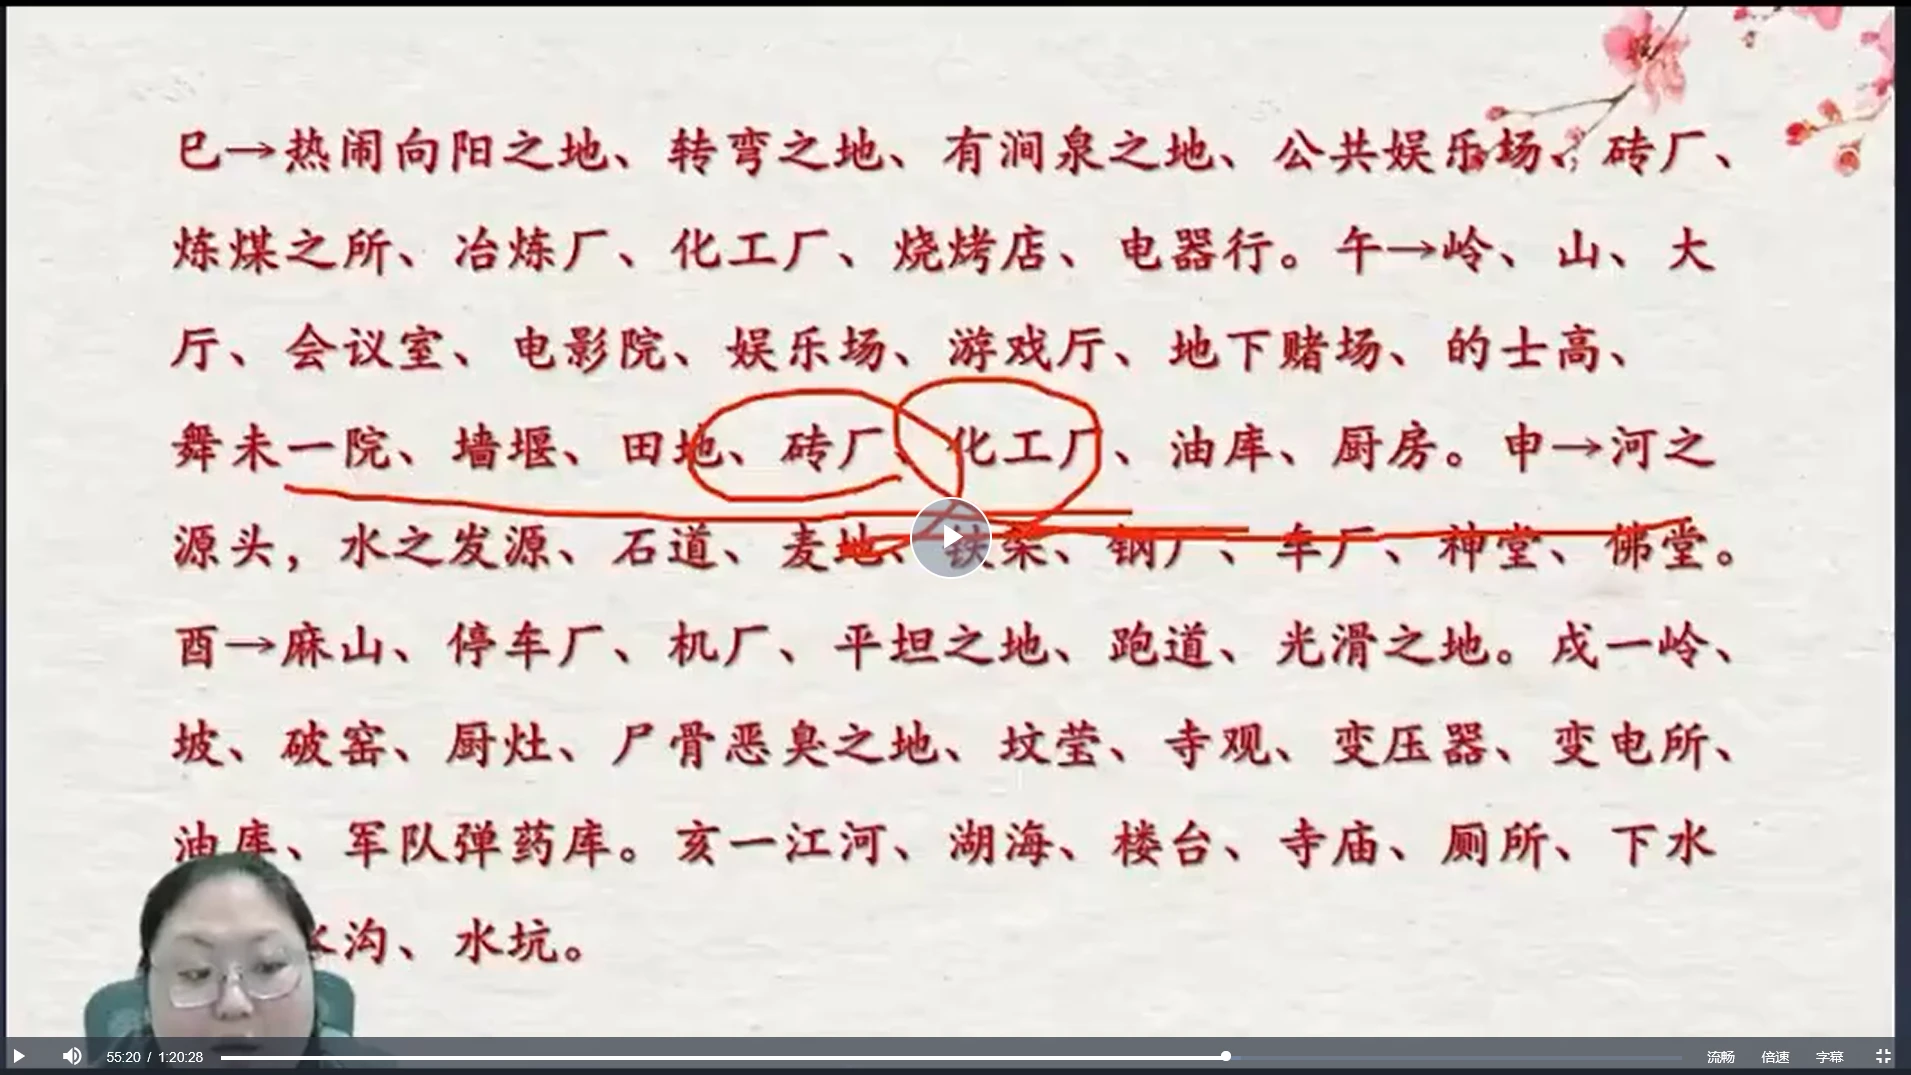 巳→热闹向阳之地、转弯之地、有涧泉之地、公共娱乐场、砖厂、
炼煤之所、冶炼厂、化工厂、烧烤店、电器行。午→岭、山、大
厅、会议室、电影院、娱乐场、游戏厅、地下赌场、的士高、
舞未一院、墙堰、田地、砖厂、化工厂、油库、厨房。申→河之
源头，水之发源、石道、麦地、铁架、钢厂、车厂、神堂、佛堂。
酉→麻山、停车厂、机厂、平坦之地、跑道、光滑之地。戌一岭、
坡、破窑、厨灶、尸骨恶臭之地、坟莹、寺观、变压器、变电所、
油库、军队弹药库。亥一江河、湖海、楼台、寺庙、厕所、下水
水沟、水坑。
55:20 / 1:20:28 流畅 倍速 字幕